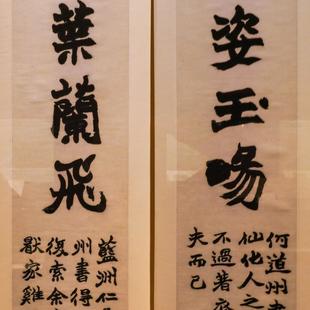 姿玉暘
何道州書
仙他人之
不過著
夫而已
葉蘭飛
藍洲仁
州書得
復索余
厭家雞